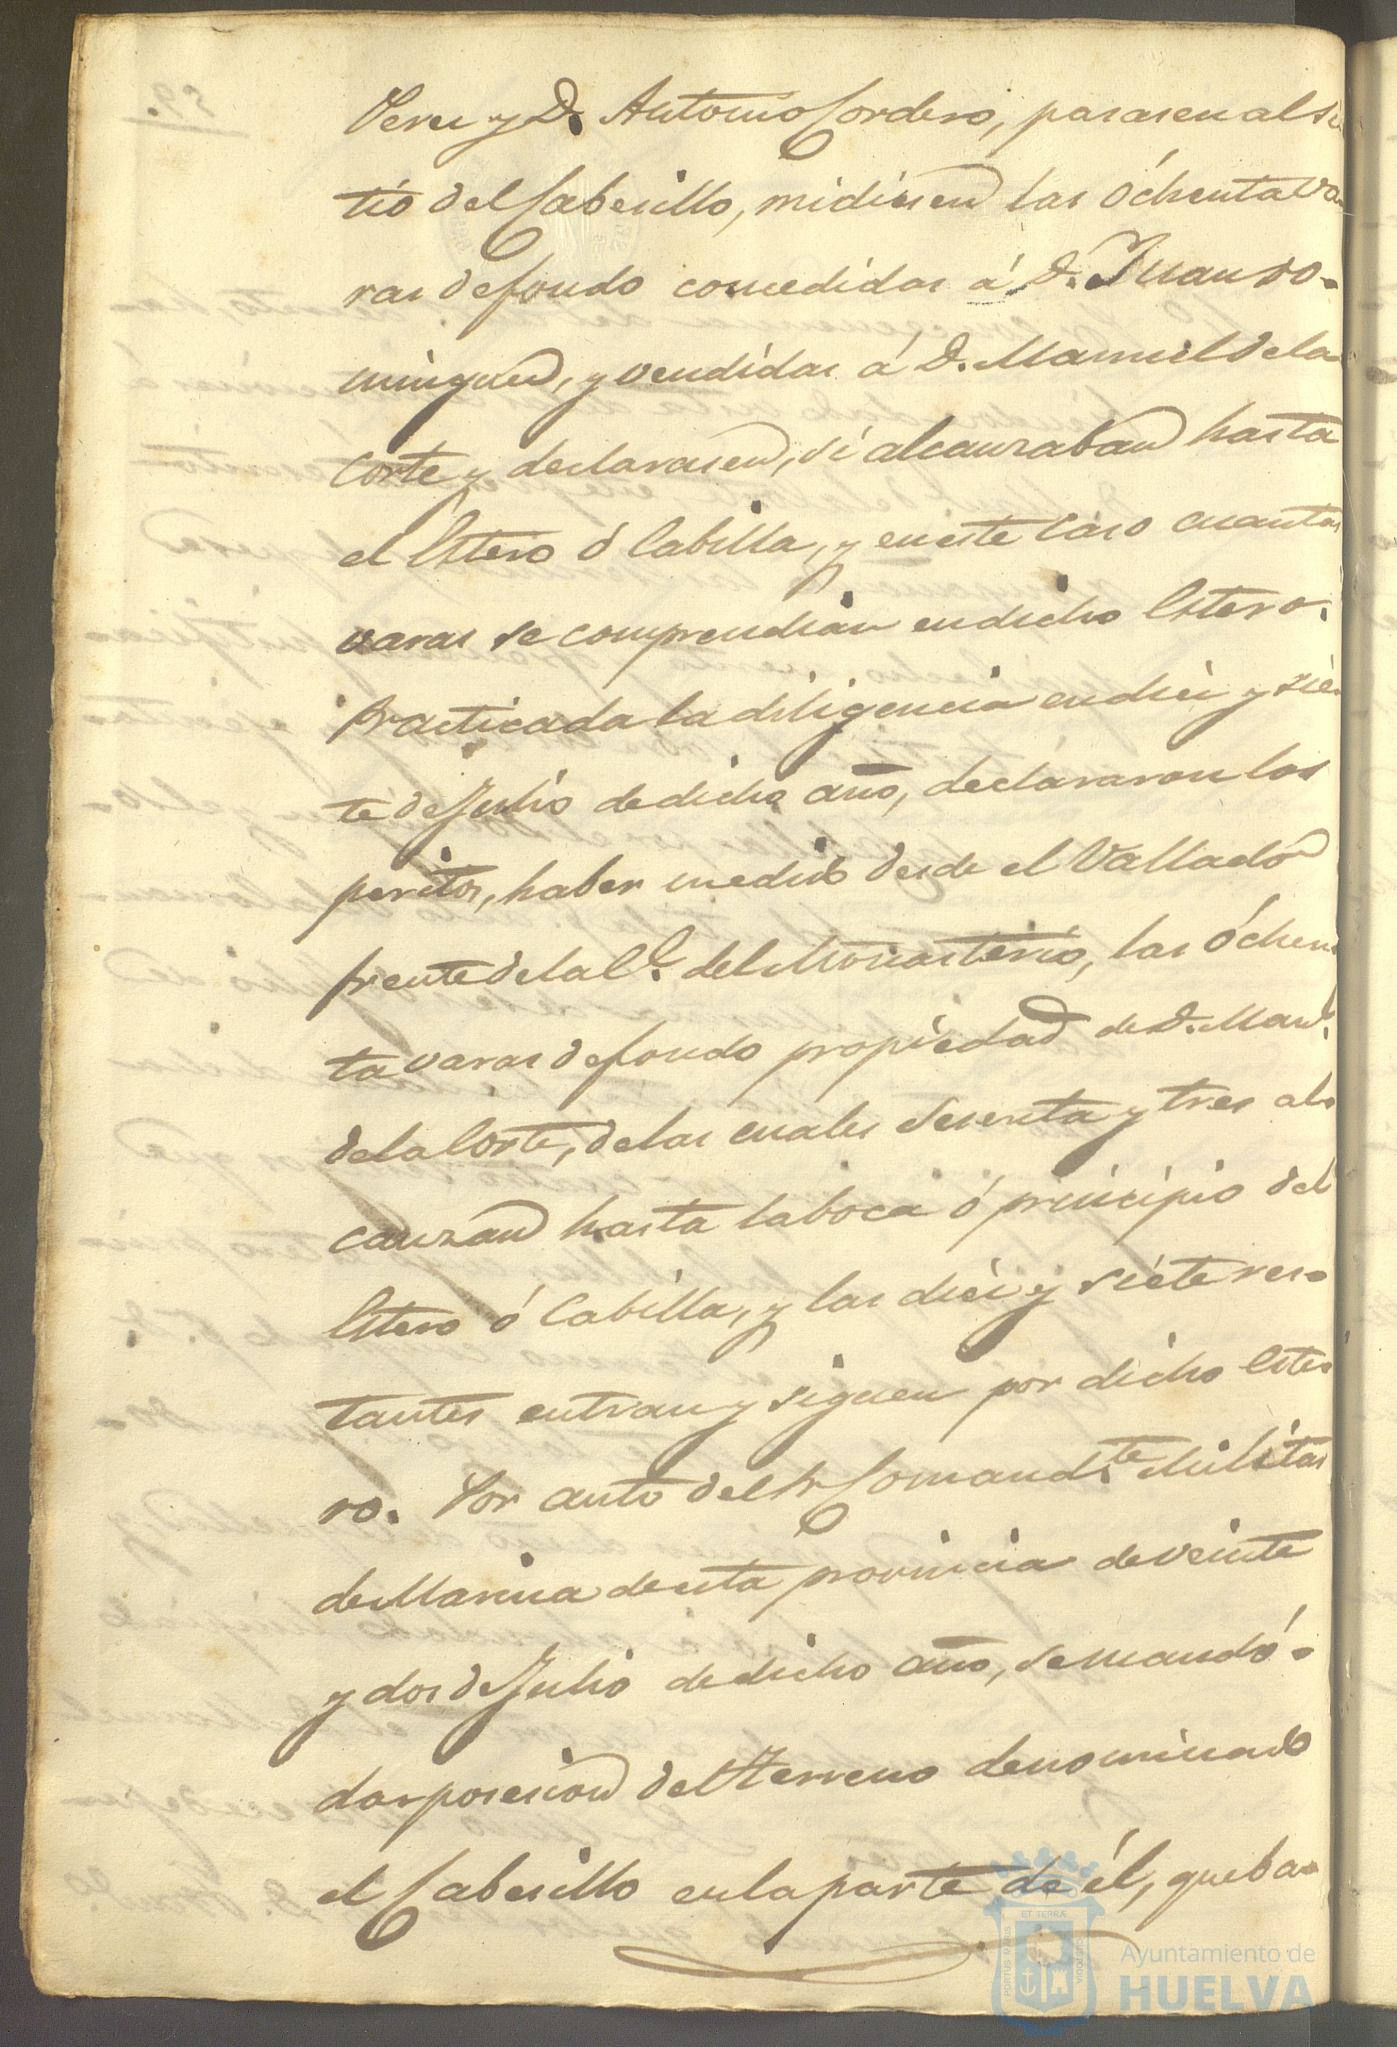 Peru y D. Antonio Cordero, pasasen al si
tio del Cabesillo, midiesen las óchenta va
ras de fondo concedidas á D. Juan Do-
minguez, y vendidas á D. Manuel de la
Corte y declarasen, si alcanzaban hasta
el Estero ó Cabilla, y en este caso cuantas
varas se comprendian en dicho Estero.
Practicada la diligencia en diez y sie-
te de Julio de dicho año, declararon los
peritos, haber medido desde el Vallado
frente de la C.e del Monasterio, las óchen
ta varas de fondo propiedad de D. Man.l
de la Corte, de las cuales sesenta y tres al-
canzan hasta la boca ó principio del
Estero ó Cabilla, y las diez y siete res-
tantes entran y siguen por dicho Este-
ro. Por auto del Sr Comand.te Militar
de Marina de esta provincia de veinte
y dos de Julio de dicho año, se mandó-
dar posesion del terreno denominado
el Cabesillo en la parte de él, que ba-
PORTUS MARIS
ET TERRAE
CUSTODIA
Ayuntamiento de
HUELVA